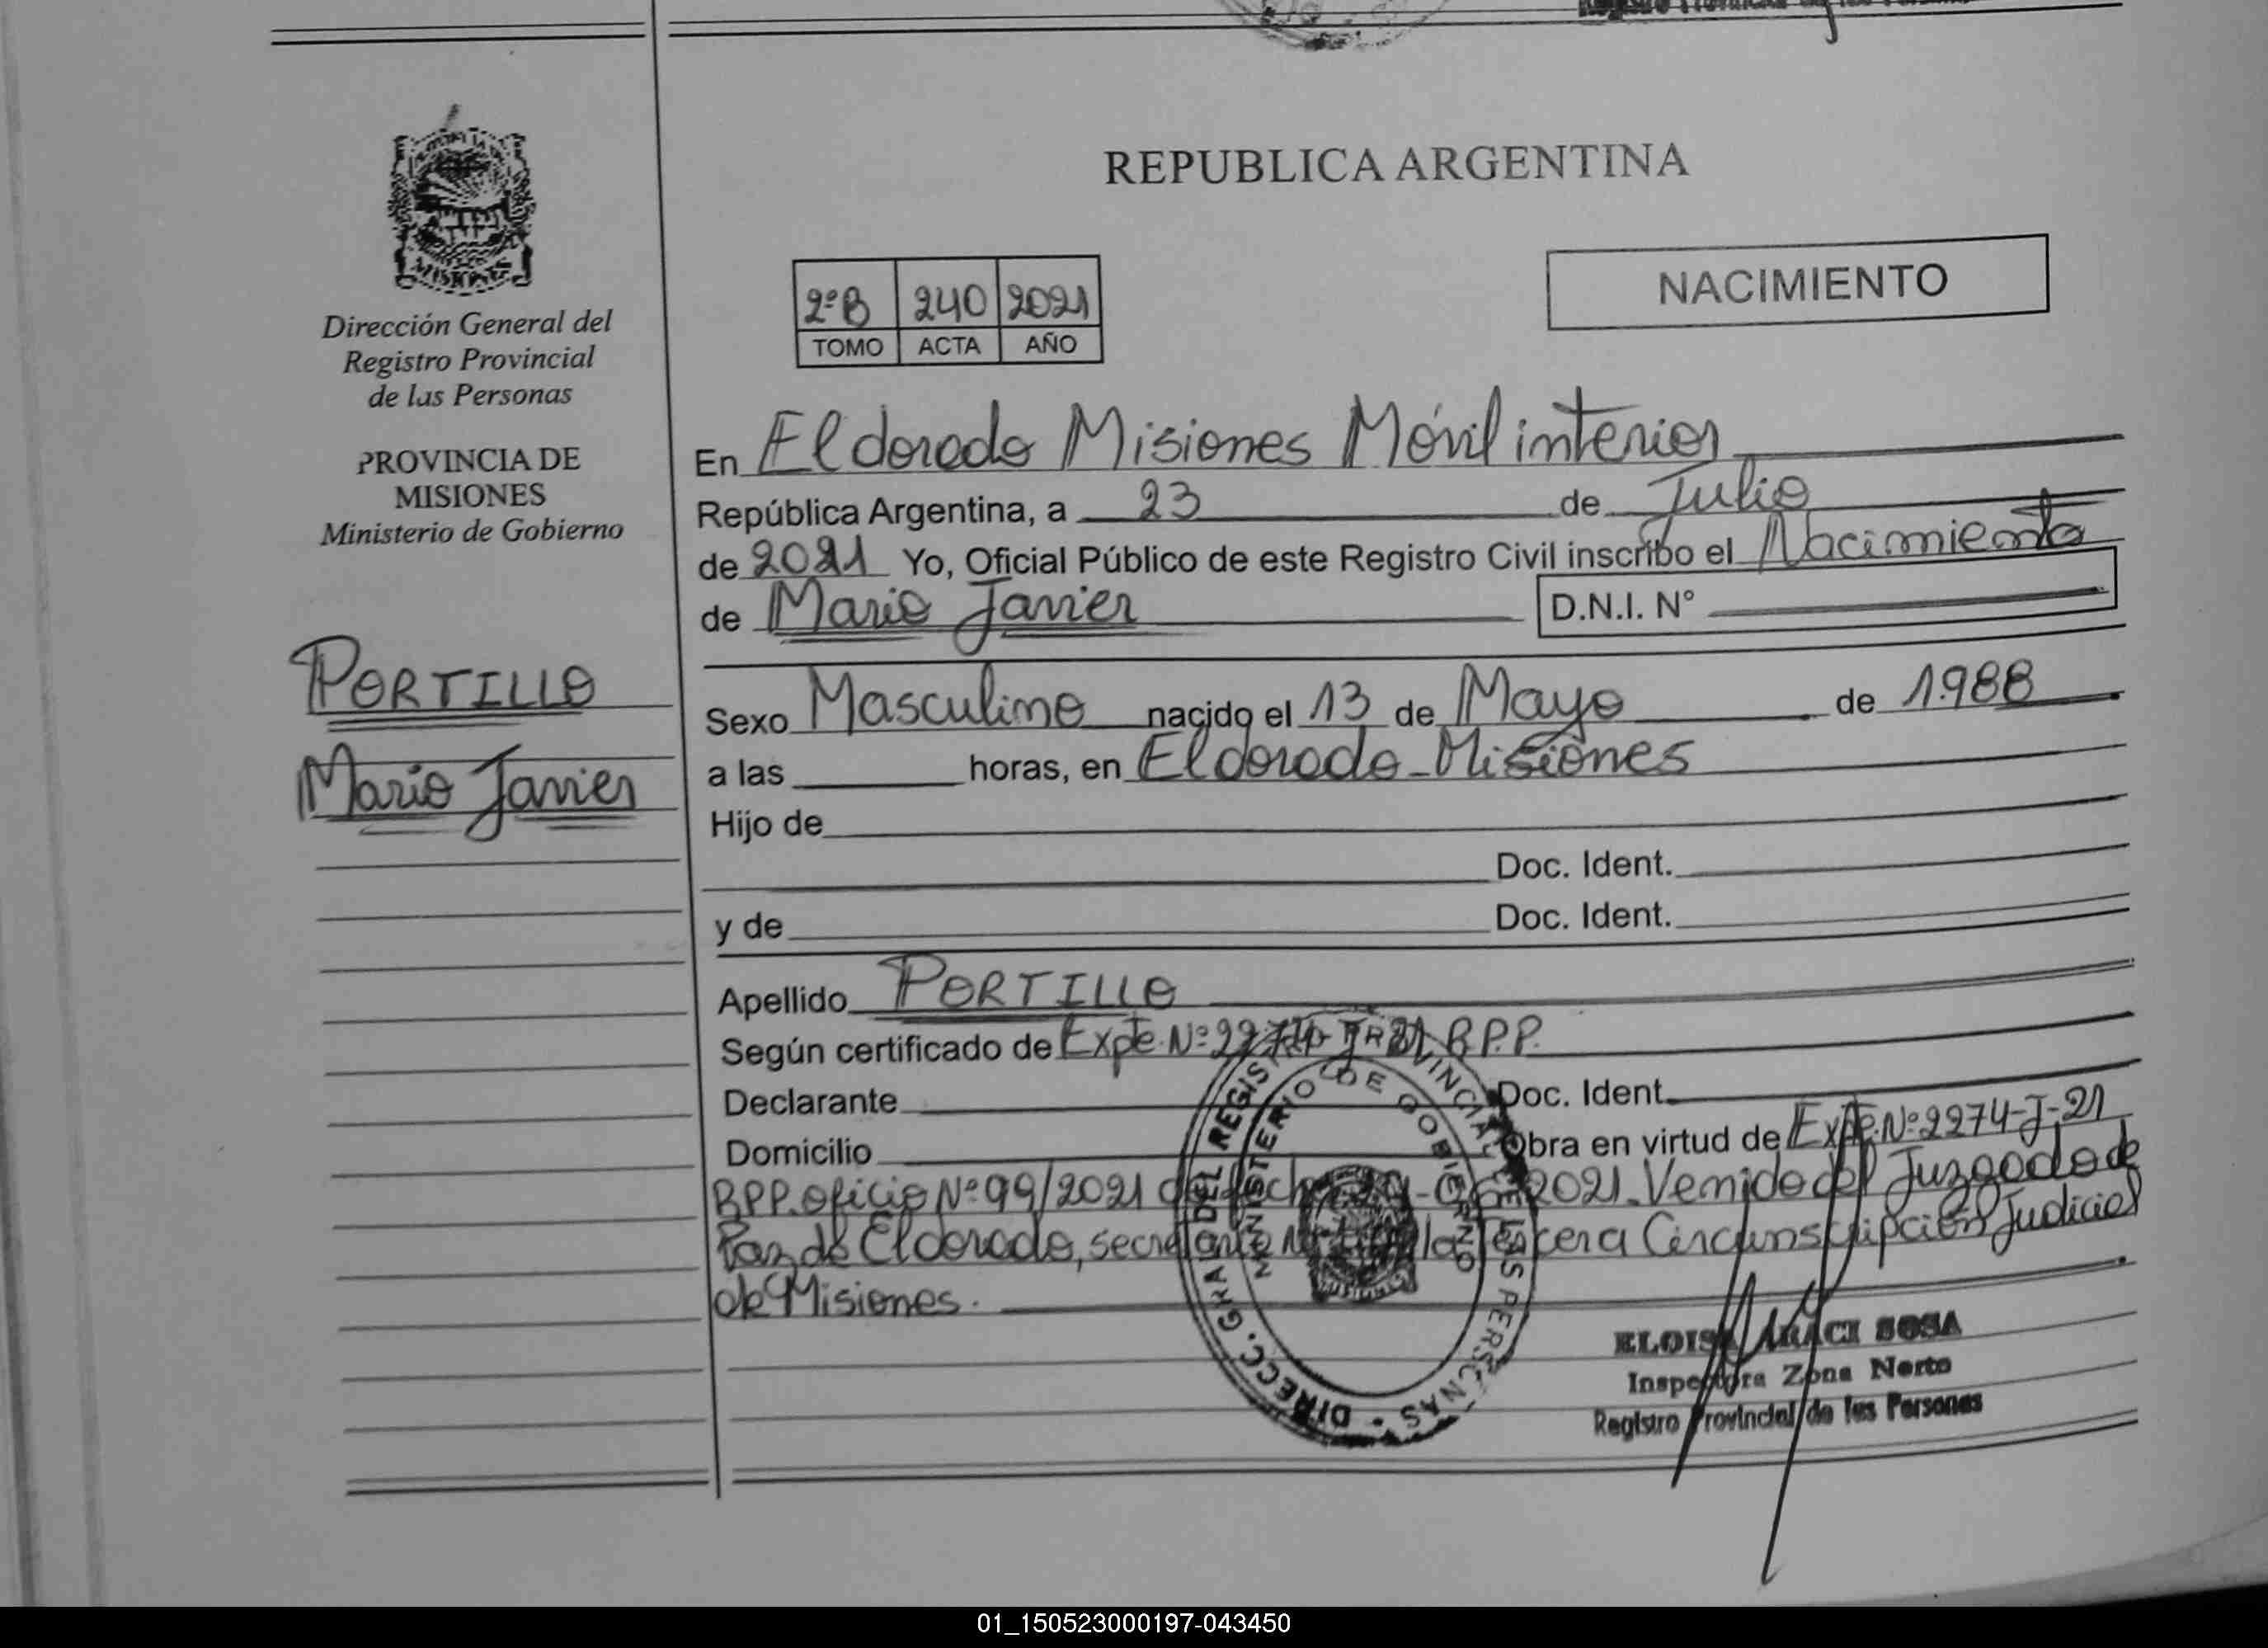 REPUBLICA ARGENTINA
Dirección General del
Registro Provincial
de las Personas
PROVINCIA DE
MISIONES
Ministerio de Gobierno
PORTILLO
Mario Javier
2ºB 240 2021
TOMO ACTA AÑO
NACIMIENTO
En Eldorado Misiones Móvil interior
República Argentina, a 23 de Julio
de 2021 Yo, Oficial Público de este Registro Civil inscribo el Nacimiento
de Mario Javier D.N.I. Nº
Sexo Masculino nacido el 13 de Mayo de 1.988
a las horas, en Eldorado-Misiones
Hijo de
Doc. Ident.
y de Doc. Ident.
Apellido PORTILLO
Según certificado de Expte. Nº 2274-J-21 R.P.P.
Declarante Doc. Ident.
Domicilio Obra en virtud de Expte. Nº 2274-J-21
RPP. oficio Nº 99/2021 de fecha 2021. Venido del Juzgado de
Paz de Eldorado, secretaría la Tercera Circunscripción Judicial
de Misiones.
DIRECC. GRAL DEL REGISTRO PROVINCIAL DE LAS PERSONAS
MINISTERIO DE GOBIERNO
ELOISA ARACI SOSA
Inspectora Zona Norte
Registro Provincial de las Personas
01_150523000197-043450